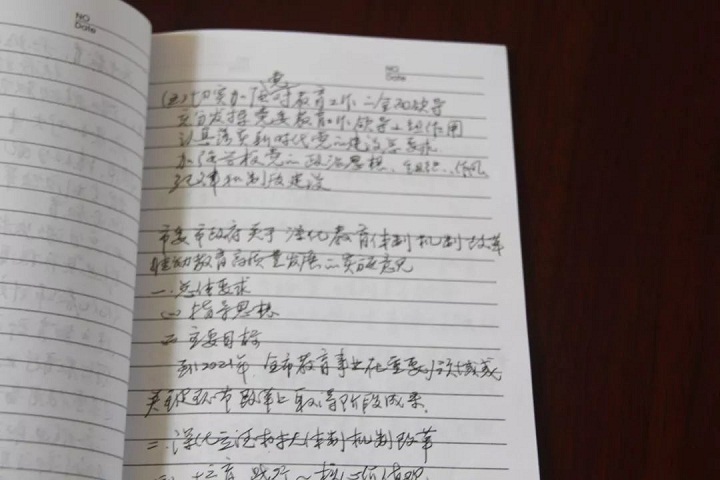 NO
Date
NO
Date
党
(五)切实加强对教育工作二全面领导
充分发挥党委教育工作领导小组作用
认真落实新时代党二建设总要求
加强学校党二政治思想、组织、作风、
纪律和制度建设
市委市政府关于深化教育体制机制改革
推动教育高质量发展二实施意见
一.总体要求
(一)指导思想
二 主要目标
到2021年 全市教育事业在重要领域或
关键环节改革上取得阶段成果.
二.深化立德树人体制机制改革